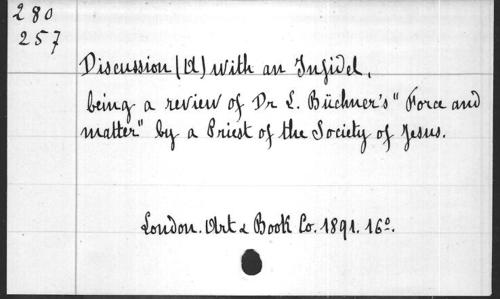 280
257
Discussion (A) with an Infidel,
being a review of Dr L. Büchner's "Force and
matter" by a Priest of the Society of Jesus.
London. Art & Book Co. 1891. 16º.